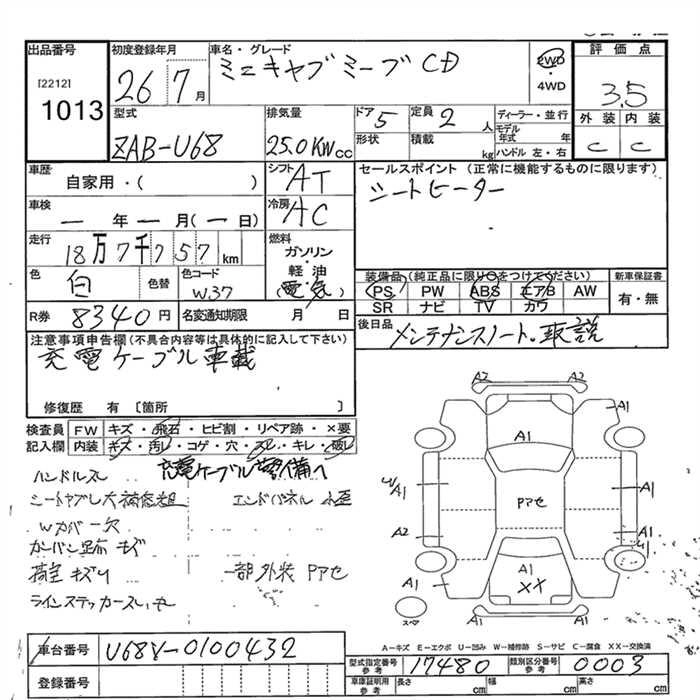 出品番号
[2212]
1013
初度登録年月
26 7 月
車名・グレード
ミニキャブミーブ CD
2WD
・
4WD
評価点
3.5
外装 内装
C C
型式
ZAB-U68
排気量
25.0 KW cc
ドア 5
形状
定員 2 人
積載 kg
ディーラー・並行
モデル年式 年
ハンドル 左・右
車歴
自家用・( )
シフト AT
セールスポイント (正常に機能するものに限ります)
シートヒーター
車検
— 年 — 月 (— 日)
冷房 AC
走行
18万7千757 km
燃料
ガソリン
・
軽油
(電・気)
色 白 色替
色コード W37
装備品 (純正品に限り○をつけてください)
PS PW ABS エアB AW
SR ナビ TV カワ
新車保証書
有・無
R券 8340 円
名変通知期限 月 日
後日品
メンテナンスノート・取説
注意事項申告欄 (不具合内容等は具体的に記入して下さい)
充電ケーブル車載
修復歴 有 [箇所 ]
検査員 FW キズ・飛石・ヒビ割・リペア跡・×要
記入欄 内装 キズ・汚レ・コゲ・穴・スレ・キレ・破レ
ハンドルスレ
Wカバー欠
エンドパネル 小歪
カンバン跡 キズ
荷室 キズ
一部外装 Pアセ
A2 A2
A1 A1
A1
A1 A1
Pアセ
A2 A1
A1
XX
A1 A1
スペア
A-キズ E-エクボ U-凹み W-補修跡 S-サビ C-腐食 XX-交換済
車台番号 U68V-0100432
登録番号
型式指定番号 参考 17480
類別区分番号 参考 0003
車庫証明用 参考 長さ cm 幅 cm 高さ cm